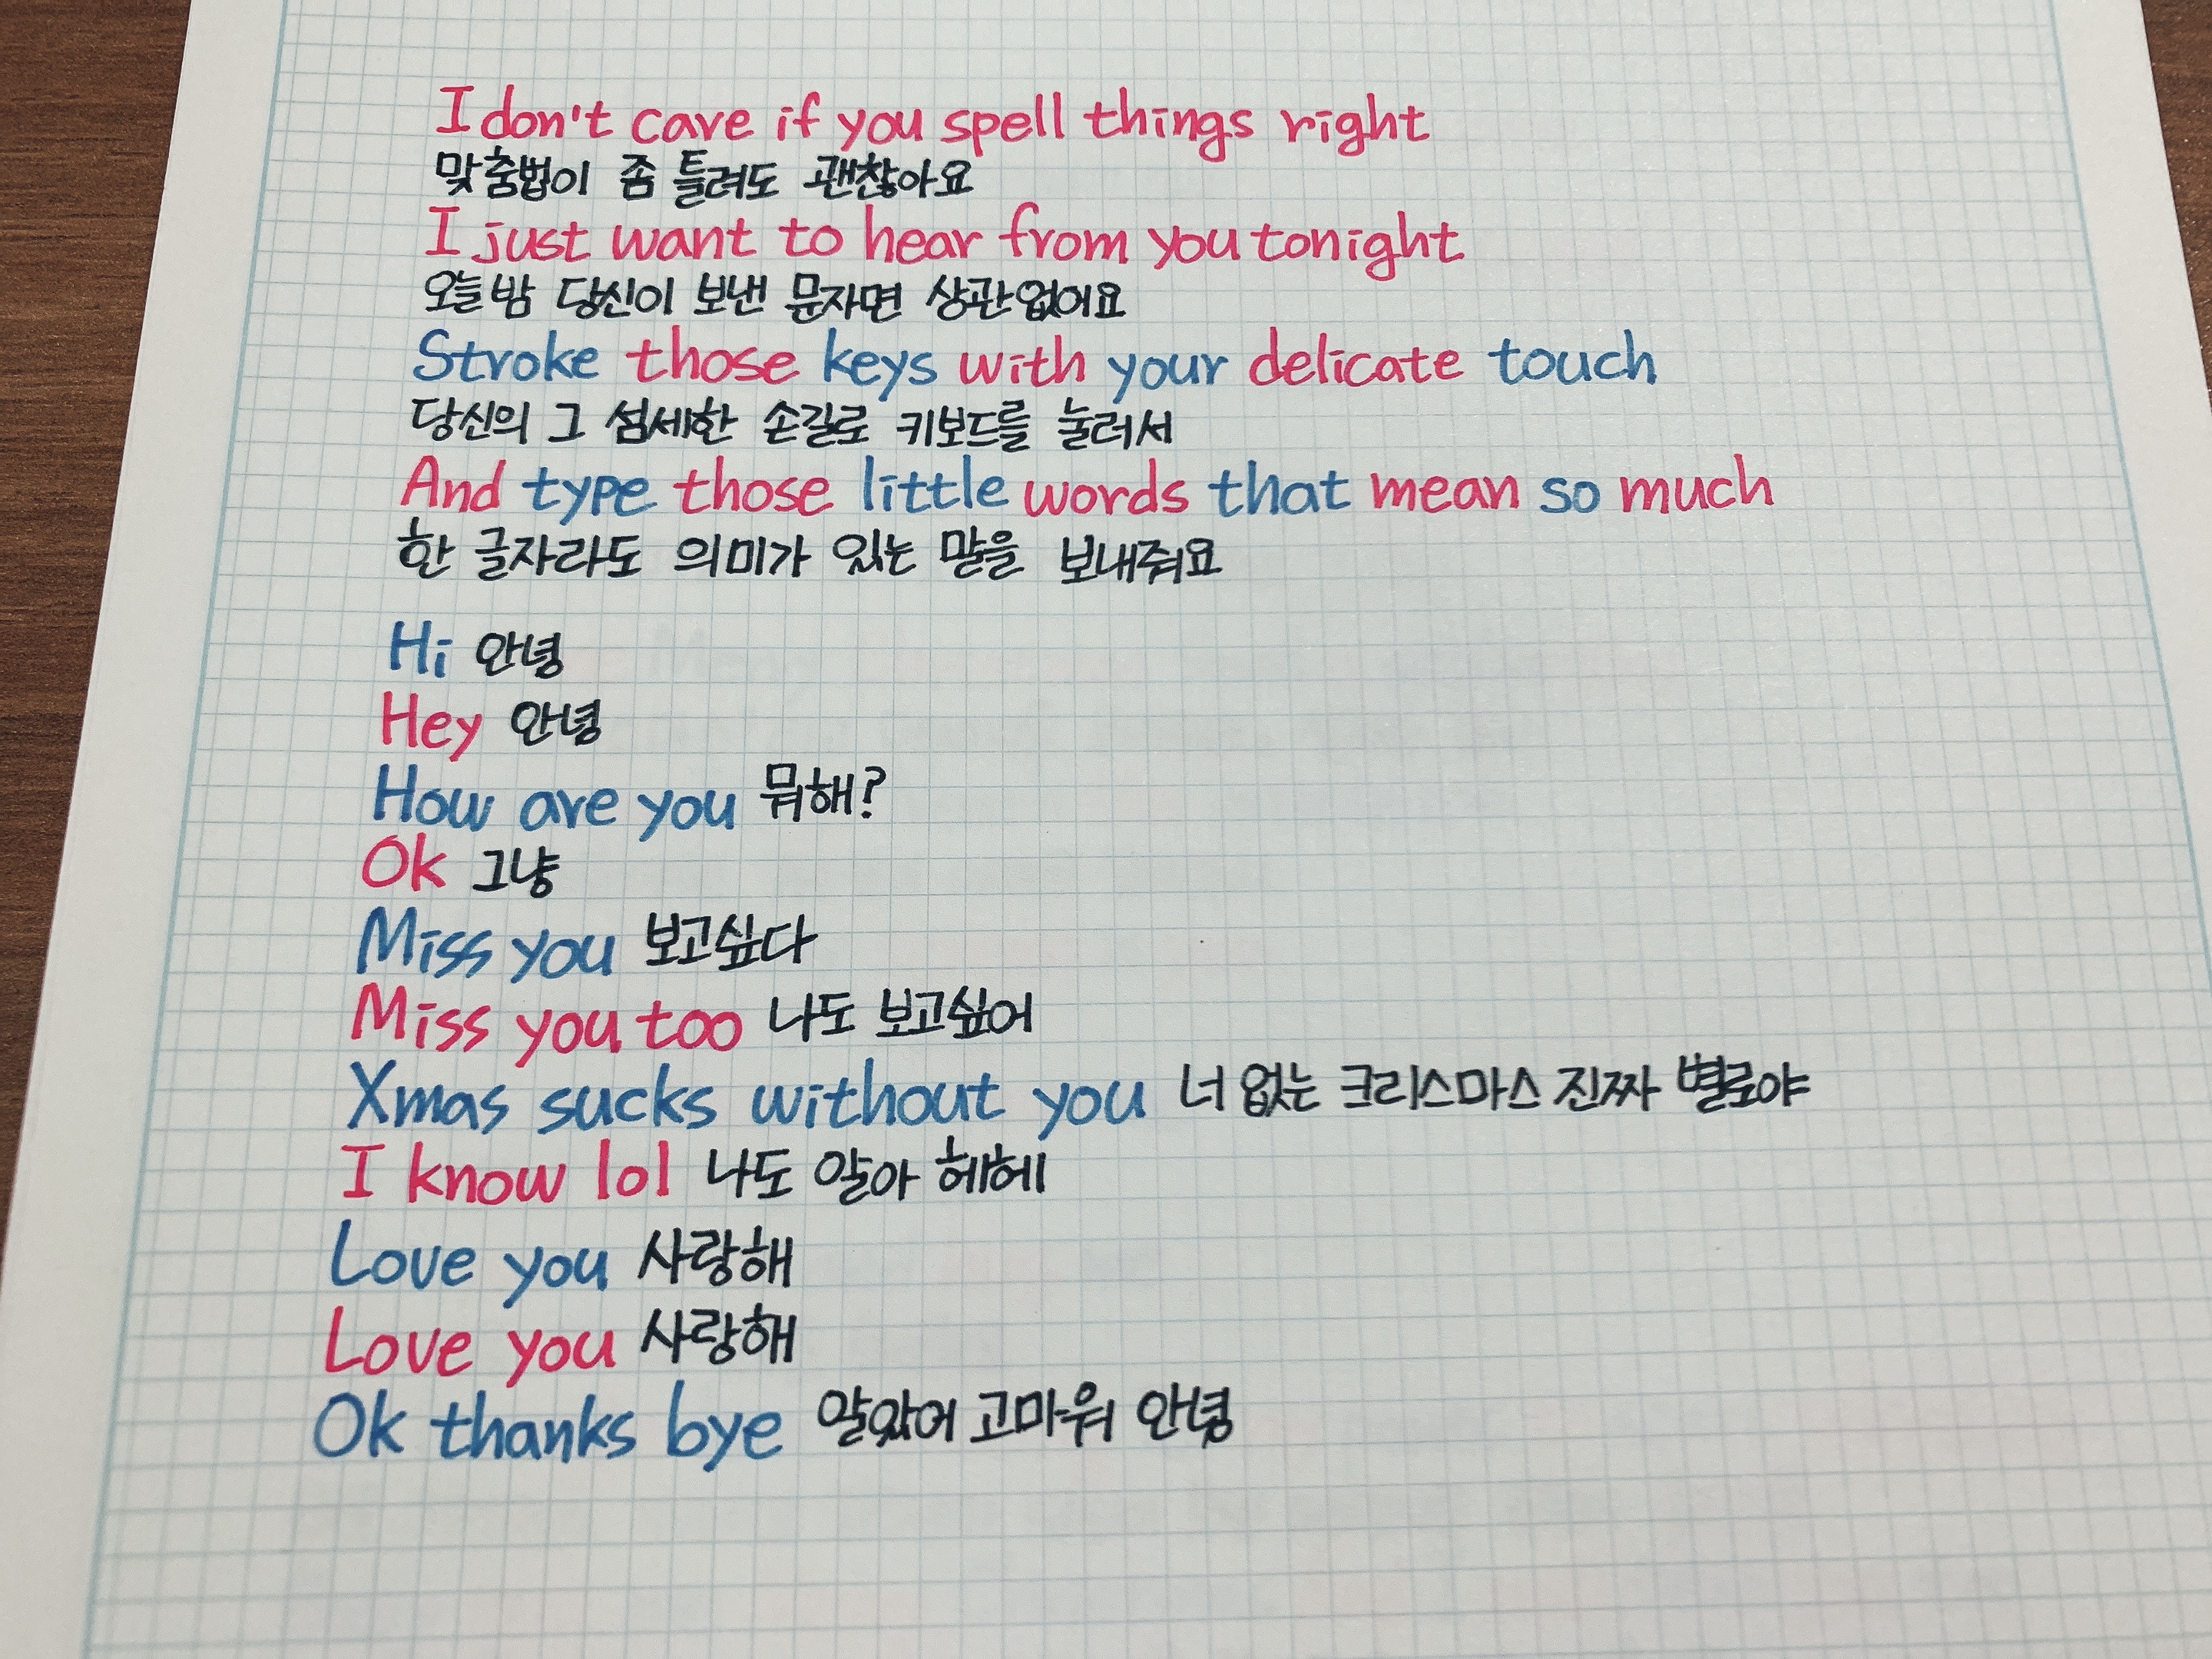 I don't care if you spell things right
맞춤법이 좀 틀려도 괜찮아요
I just want to hear from you tonight
오늘밤 당신이 보낸 문자면 상관없어요
Stroke those keys with your delicate touch
당신의 그 섬세한 손길로 키보드를 눌러서
And type those little words that mean so much
한 글자라도 의미가 있는 말을 보내줘요
Hi 안녕
Hey 안녕
How are you 뭐해?
Ok 그냥
Miss you 보고싶다
Miss you too 나도 보고싶어
Xmas sucks without you 너 없는 크리스마스 진짜 별로야
I know lol 나도 알아 헤헤
Love you 사랑해
Love you 사랑해
Ok thanks bye 알았어 고마워 안녕